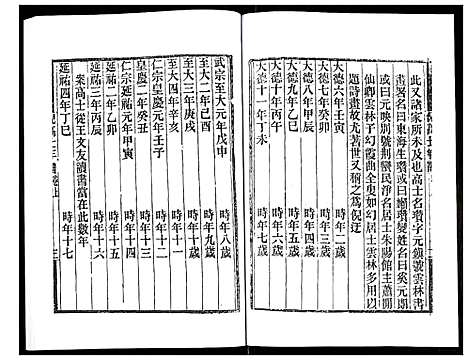 此又諸家所未及也高士名瓚字元鎮號雲林書
畫署名曰東海生瓚或曰嬾瓚變姓名曰奚元朗
曰元映別號荆蠻民淨名居士朱陽館主蕭閒
仙卿雲林子幻霞曲全叟如幻居士雲林多用以
題詩畫故尤著世又稱之爲倪迂
大德六年壬寅 時年二歲
大德七年癸卯 時年三歲
大德八年甲辰 時年四歲
大德九年乙巳 時年五歲
大德十年丙午 時年六歲
大德十一年丁未 時年七歲
武宗至大元年戊申 時年八歲
至大二年己酉 時年九歲
至大三年庚戌 時年十歲
至大四年辛亥 時年十一
仁宗皇慶元年壬子 時年十二
皇慶二年癸丑 時年十三
仁宗延祐元年甲寅 時年十四
延祐二年乙卯 時年十五
延祐三年丙辰 時年十六
案高士從王文友讀書當在此數年
延祐四年丁巳 時年十七